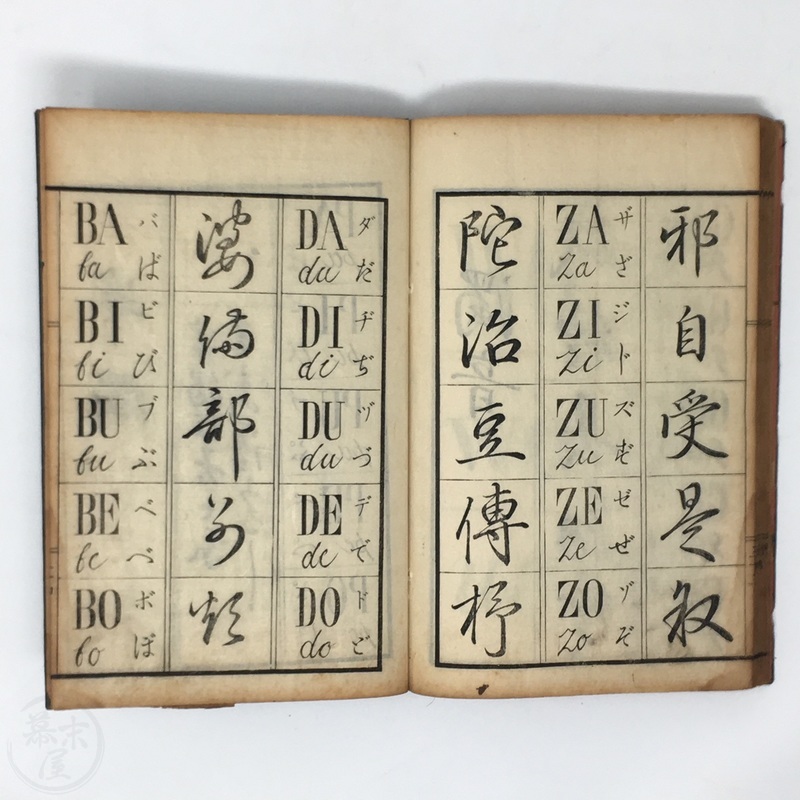 邪
自
受
是
叙
ZA ザ
za ざ
ZI ジ
zi
ZU ズ
zu
ZE ゼ
ze ぜ
ZO ゾ
zo ぞ
陀
治
豆
傳
杼
DA ダ
da だ
DI ヂ
di ぢ
DU ヅ
du づ
DE デ
de で
DO ド
do ど
婆
備
部
別
煩
BA バ
ba ば
BI ビ
bi び
BU ブ
bu ぶ
BE ベ
be べ
BO ボ
bo ぼ
幕末屋